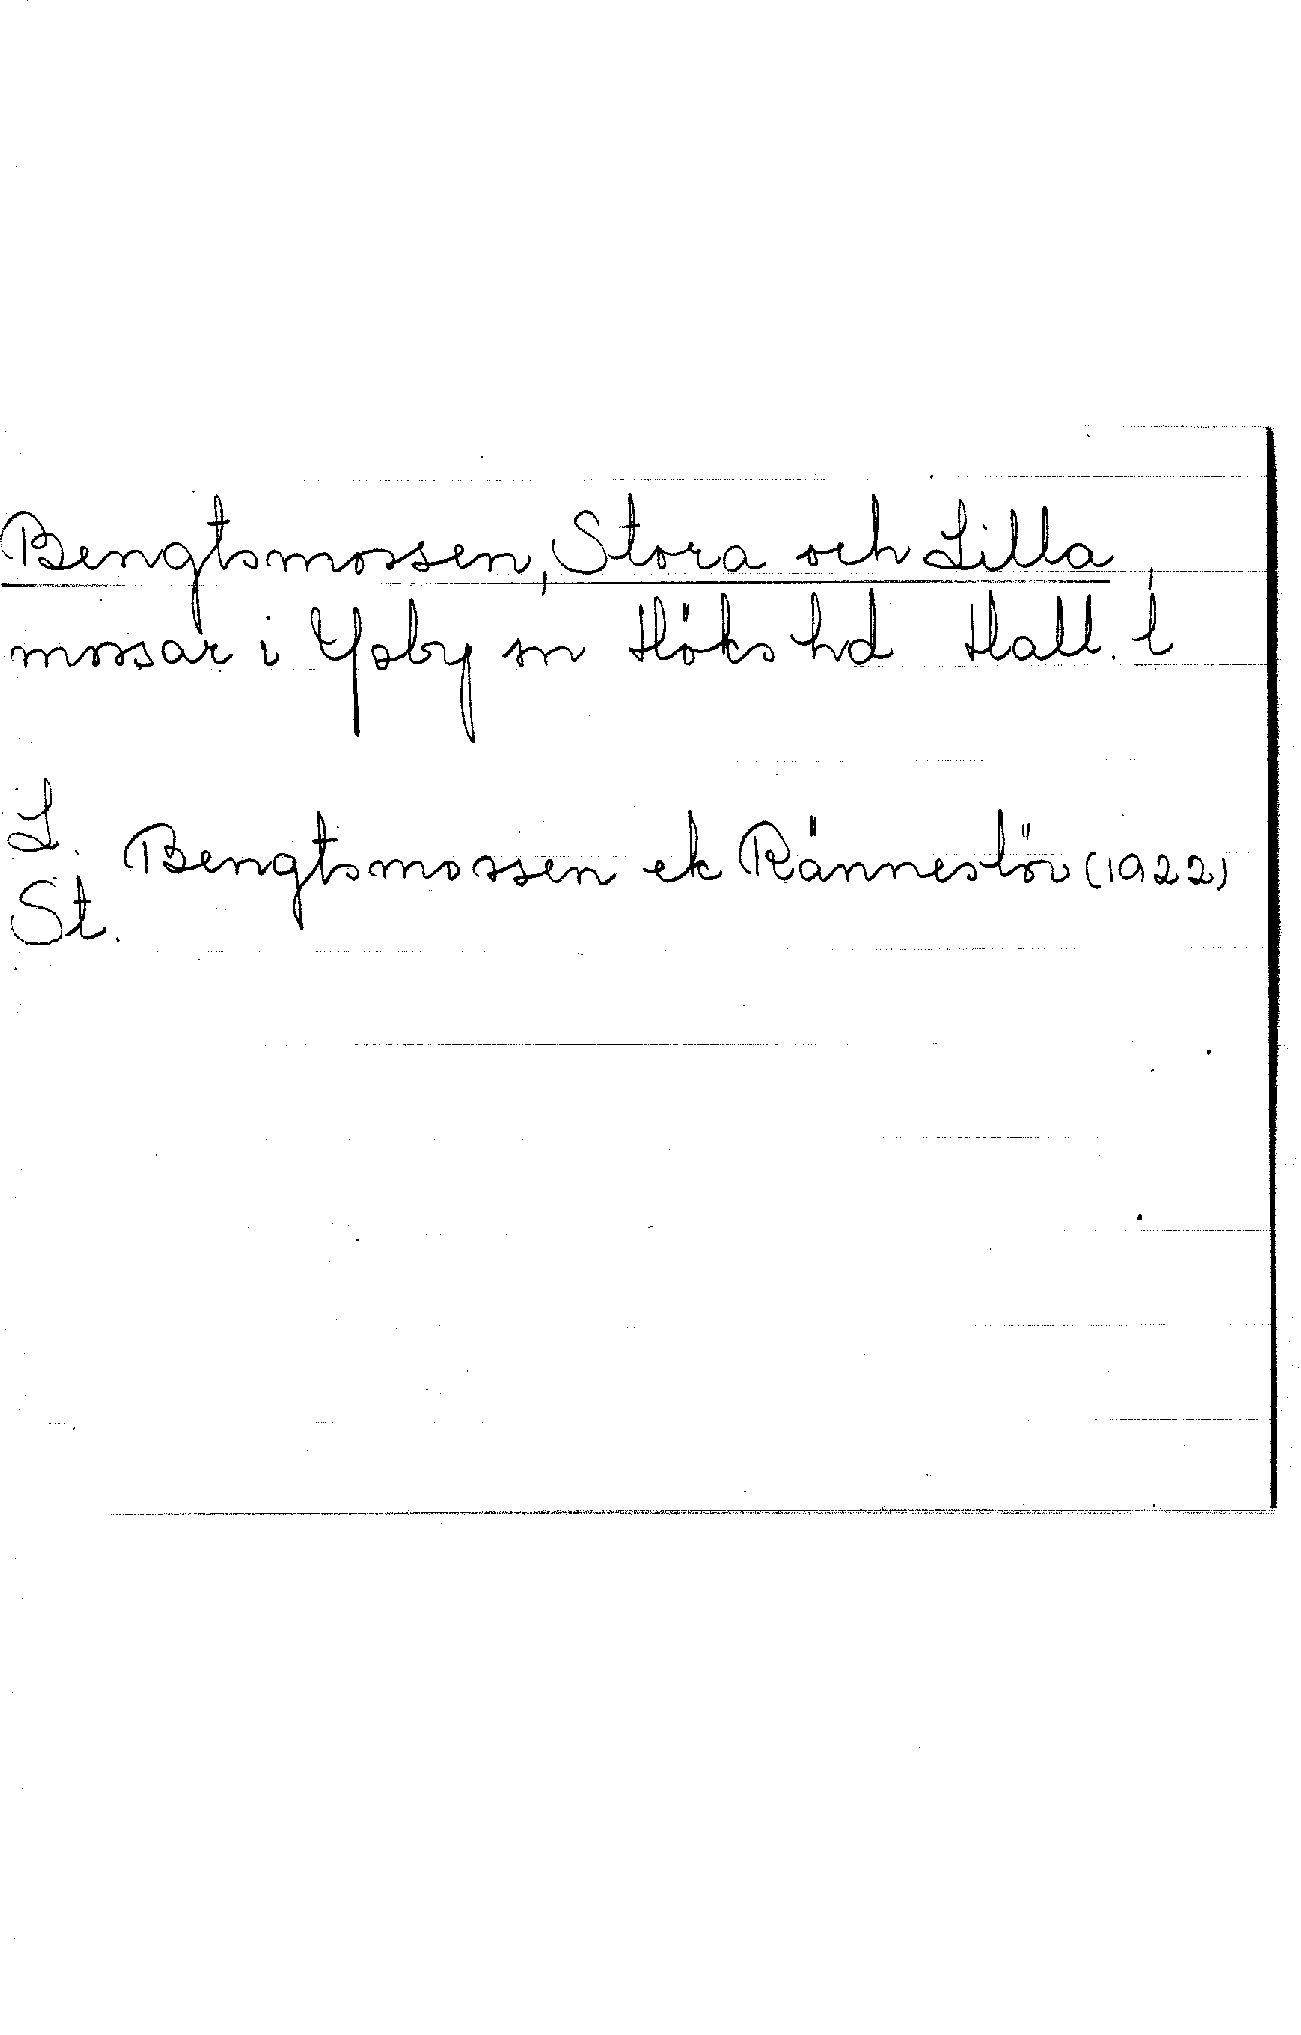 Bengtsmossen, Stora och Lilla,
mossar i Ysby sn Höks hd Hall. l
L.
Bengtsmossen ek Ränneslöv (1922)
St.